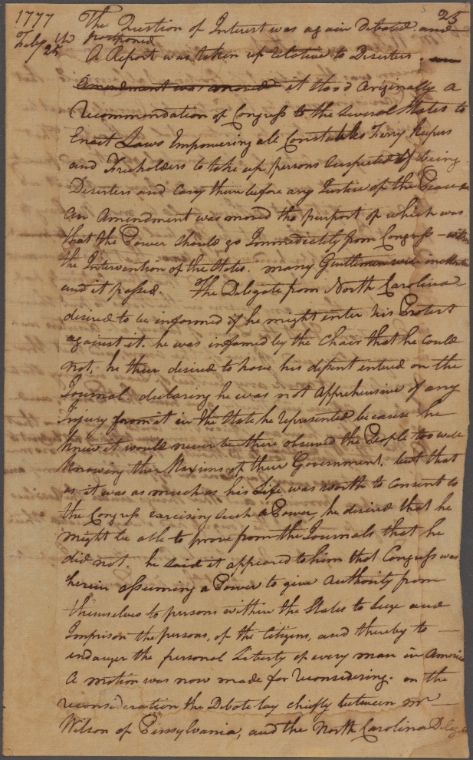 1777 The Question of Interest was again Debated and 25
Feby 25 postponed
A Report was taken up relative to Deserters.
Amendment was moved it stood Originally a
recommendation of Congress to the Several States to
Enact Laws Impowering all Constables Ferry Keepers
and Freeholders to take up persons Suspected of being
Deserters and Carry them before any Justice of the Peace
An Amendment was moved the purport of which was
that the Power should go Immediately from Congress
the Intervention of the States. many Gentlemen were
and it passed. The Delegate from North Carolina
desired to be informed if he might enter his Protest
against it. he was informed by the Chair that he Could
not. he then desired to have his dissent entered on the
Journal declaring he was not Apprehensive of any
Injury from it in the State he represented because he
knew it would never be there observed the People too well
knowing the Maxims of their Government. but that
as it was as much as his Life was worth to Consent to
the Congress exercising such a Power, he desired that he
might be able to prove from the Journals that he
did not. he said it appeared to him that Congress was
herein assuming a Power to give Authority from
themselves to persons within the States to Seize and
Imprison the persons, of the Citizens, and thereby to
endanger the personal Liberty of every man in America
A motion was now made for reconsidering. on the
reconsideration the Debate lay chiefly between Mr
Wilson of Pensylvania, and the North Carolina